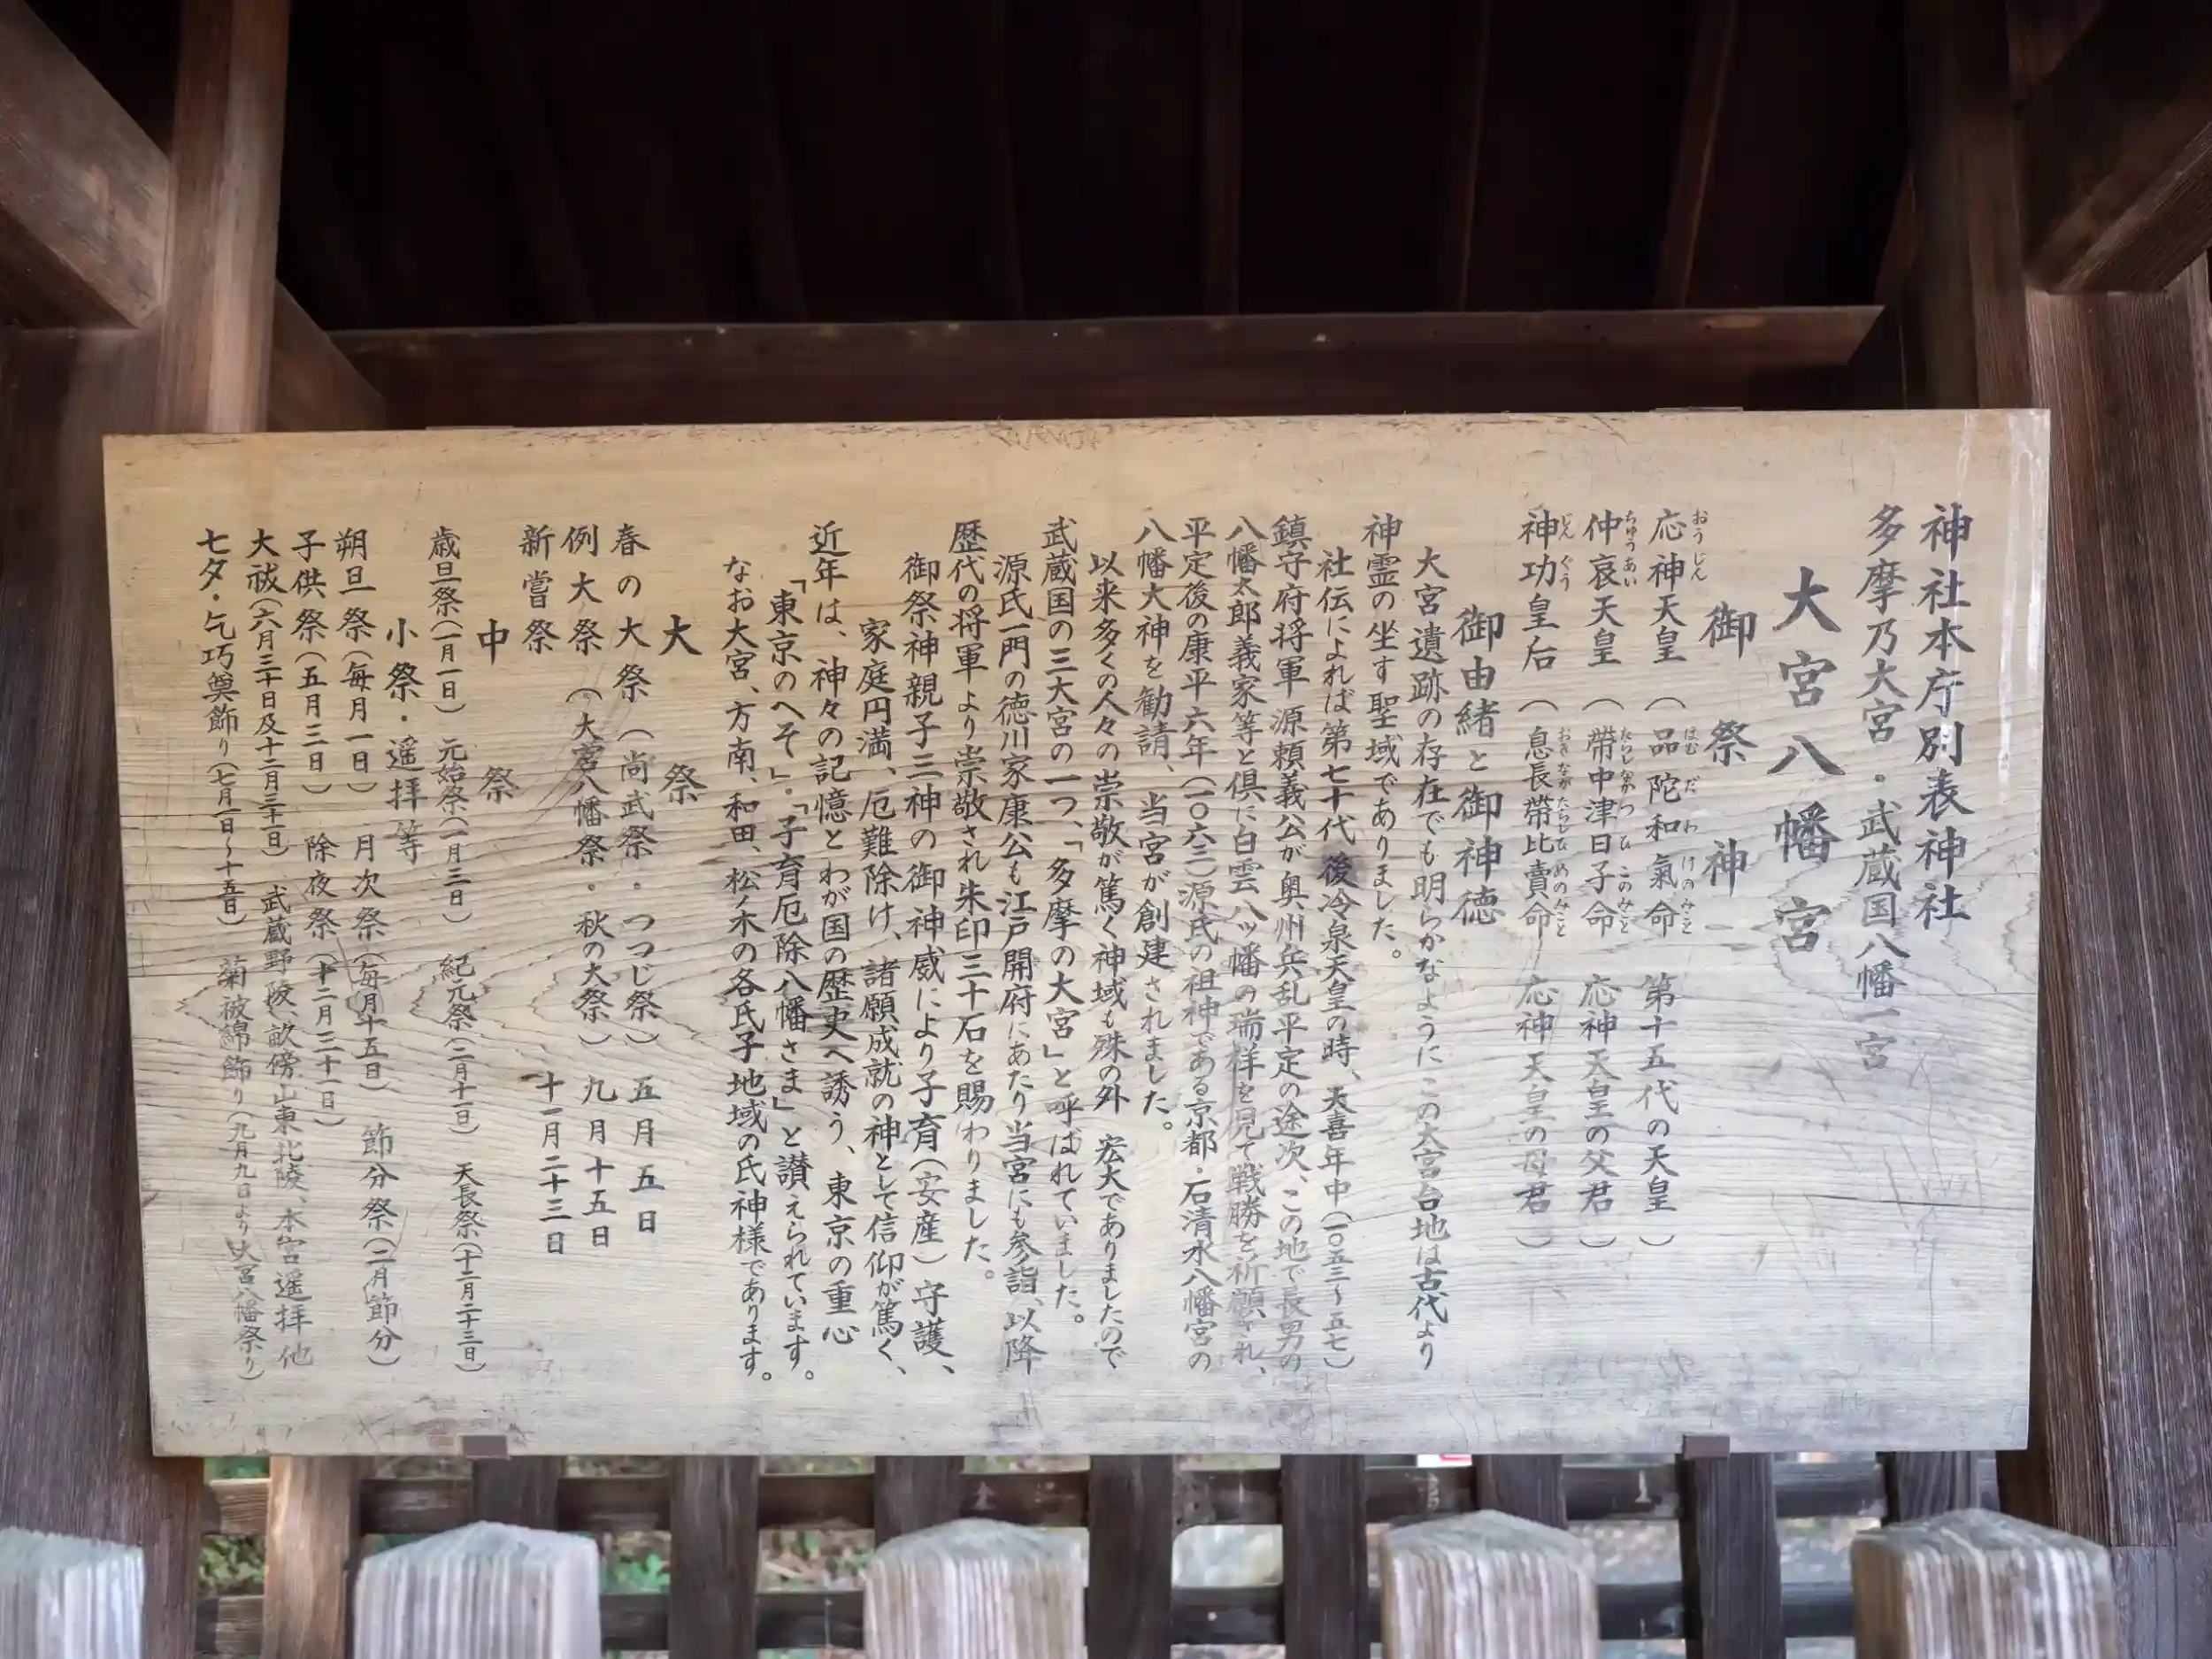 神社本庁別表神社
多摩乃大宮・武蔵国八幡一宮
大宮八幡宮
御祭神
応神天皇（品陀和氣命　第十五代の天皇）
おうじん　ほむだわけのみこと
仲哀天皇（帶中津日子命　応神天皇の父君）
ちゅうあい　たらしなかつひこのみこと
神功皇后（息長帶比賣命　応神天皇の母君）
じんぐう　おきながたらしひめのみこと
御由緒と御神徳
大宮遺跡の存在でも明らかなようにこの大宮台地は古代より
神霊の坐す聖域でありました。
社伝によれば第七十代後冷泉天皇の時、天喜年中（一〇五三〜五七）
鎮守府将軍源頼義公が奥州兵乱平定の途次、この地で長男の
八幡太郎義家等と倶に白雲八ッ幡の瑞祥を見て戦勝を祈願され、
平定後の康平六年（一〇六三）源氏の祖神である京都・石清水八幡宮の
八幡大神を勧請、当宮が創建されました。
以来多くの人々の崇敬が篤く神域も殊の外　宏大でありましたので
武蔵国の三大宮の一つ、「多摩の大宮」と呼ばれていました。
源氏一門の徳川家康公も江戸開府にあたり当宮にも参詣、以降
歴代の将軍より崇敬され朱印三十石を賜わりました。
御祭神親子三神の御神威により子育（安産）守護、
家庭円満、厄難除け、諸願成就の神として信仰が篤く、
近年は、神々の記憶とわが国の歴史へ誘う、東京の重心
「東京のへそ」・「子育厄除八幡さま」と讃えられています。
なお大宮、方南、和田、松ノ木の各氏子地域の氏神様であります。
大祭
春の大祭（尚武祭・つつじ祭）五月五日
例大祭（大宮八幡祭・秋の大祭）九月十五日
新嘗祭　十一月二十三日
中祭
歳旦祭（一月一日）　元始祭（一月三日）　紀元祭（二月十一日）　天長祭（十二月二十三日）
小祭・遥拝等
朔旦祭（毎月一日）　月次祭（毎月十五日）　節分祭（二月節分）
子供祭（五月三日）　除夜祭（十二月三十一日）
大祓（六月三十日及十二月三十一日）　武蔵野陵、畝傍山東北陵、本宮遥拝他
七夕・乞巧奠飾り（七月一日〜十五日）　菊被綿飾り（九月九日より大宮八幡祭り）